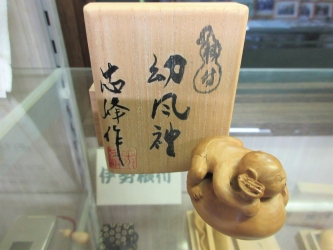 根付
幼風神
志峰作
伊勢根付